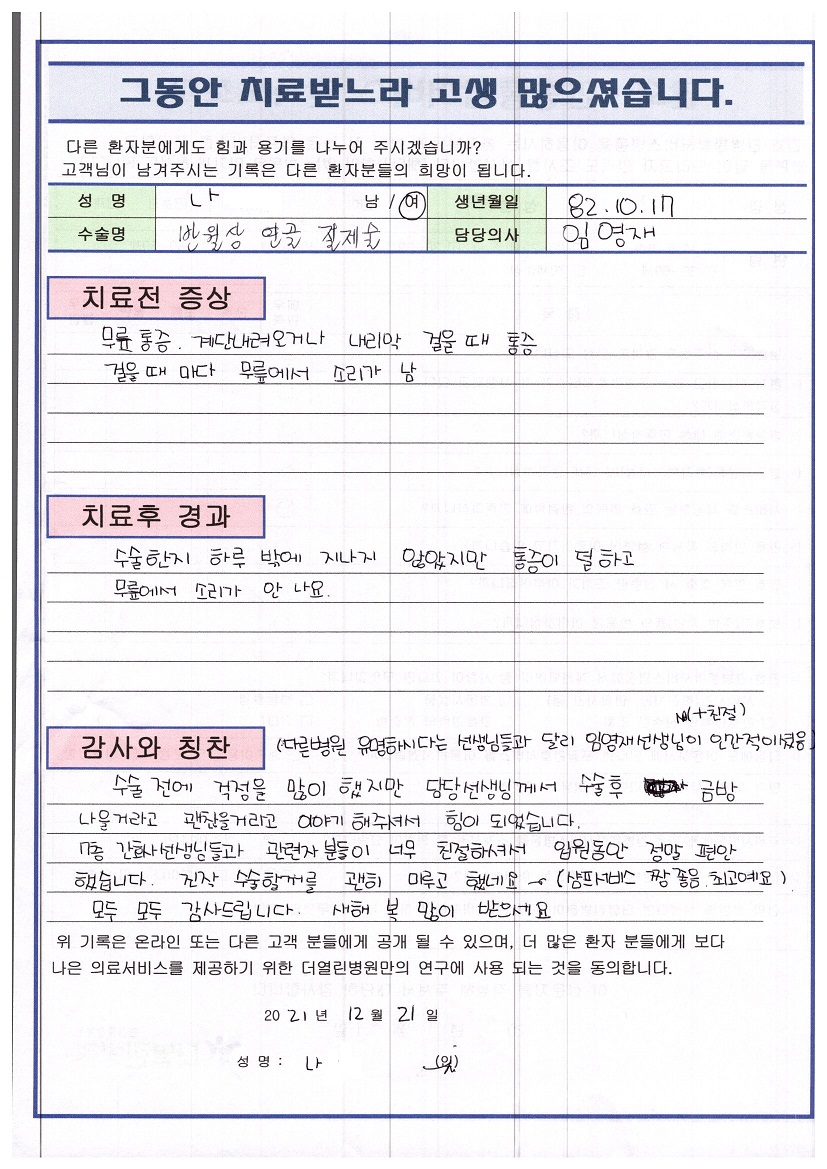 그동안 치료받느라 고생 많으셨습니다.
다른 환자분에게도 힘과 용기를 나누어 주시겠습니까?
고객님이 남겨주시는 기록은 다른 환자분들의 희망이 됩니다.
성 명 나 남 / 여 생년월일 82.10.17
수술명 반월상 연골 절제술 담당의사 임영재
치료전 증상
무릎통증. 계단내려오거나 내리막 걸을 때 통증
걸을 때 마다 무릎에서 소리가 남
치료후 경과
수술한지 하루 밖에 지나지 않았지만 통증이 덜 하고
무릎에서 소리가 안 나요.
(+친절)
감사와 칭찬 (다른병원 유명하시다는 선생님들과 달리 임영재선생님이 인간적이셨음)
수술 전에 걱정을 많이 했지만 담당선생님께서 수술후 금방
나을거라고 괜찮을거라고 이야기 해주셔서 힘이 되었습니다.
7층 간호사선생님들과 관련자 분들이 너무 친절하셔서 입원동안 정말 편안
했습니다. 진작 수술할거를 괜히 미루고 했네요~ (샴푸서비스 짱 좋음. 최고예요)
모두 모두 감사드립니다. 새해 복 많이 받으세요
위 기록은 온라인 또는 다른 고객 분들에게 공개 될 수 있으며, 더 많은 환자 분들에게 보다
나은 의료서비스를 제공하기 위한 더열린병원만의 연구에 사용 되는 것을 동의합니다.
2021년 12월 21일
성 명 : 나 (인)